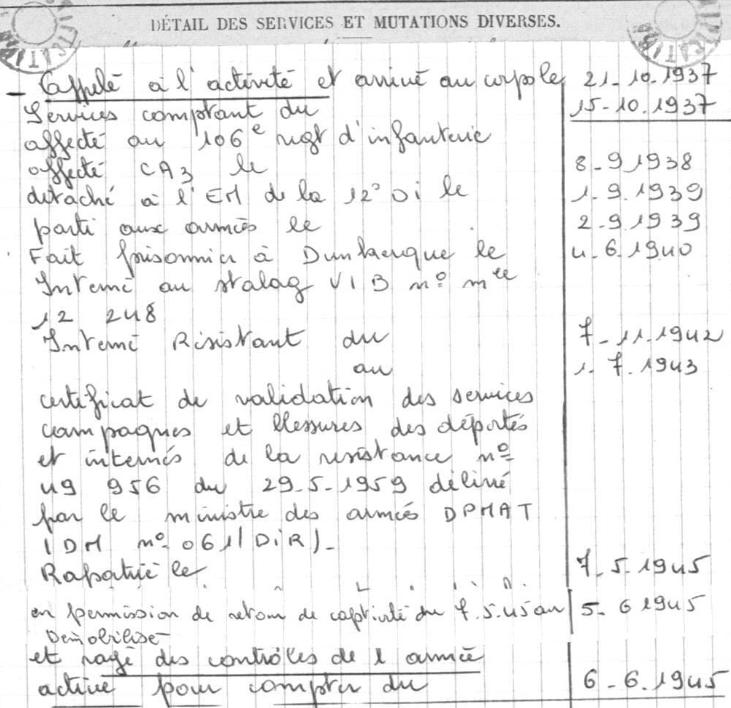 DÉTAIL DES SERVICES ET MUTATIONS DIVERSES.
- Appelé à l'activité et arrivé au corps le 21-10-1937
Services comptant du 15-10.1937
affecté au 106e rgt d'infanterie
affecté CA3 le 8-9 1938
détaché à l'EM de la 12° Di le 1.9.1939
parti aux armées le 2-9 1939
Fait prisonnier à Dunkerque le 4.6.1940
Interné au stalag VI B n° mle
12 248
Interné Résistant du 7-11.1942
au 1.7.1943
certificat de validation des services
campagnes et blessures des déportés
et internés de la résistance n°
49 956 du 29.5-1959 délivré
par le ministre des armées DPMAT
(DM n° 061/DiR)-
Rapatrié le 7-5.1945
en permission de retour de captivité du 7.5.45 au 5-6 1945
Démobilisé
et rayé des contrôles de l armée
active pour compter du 6-6.1945